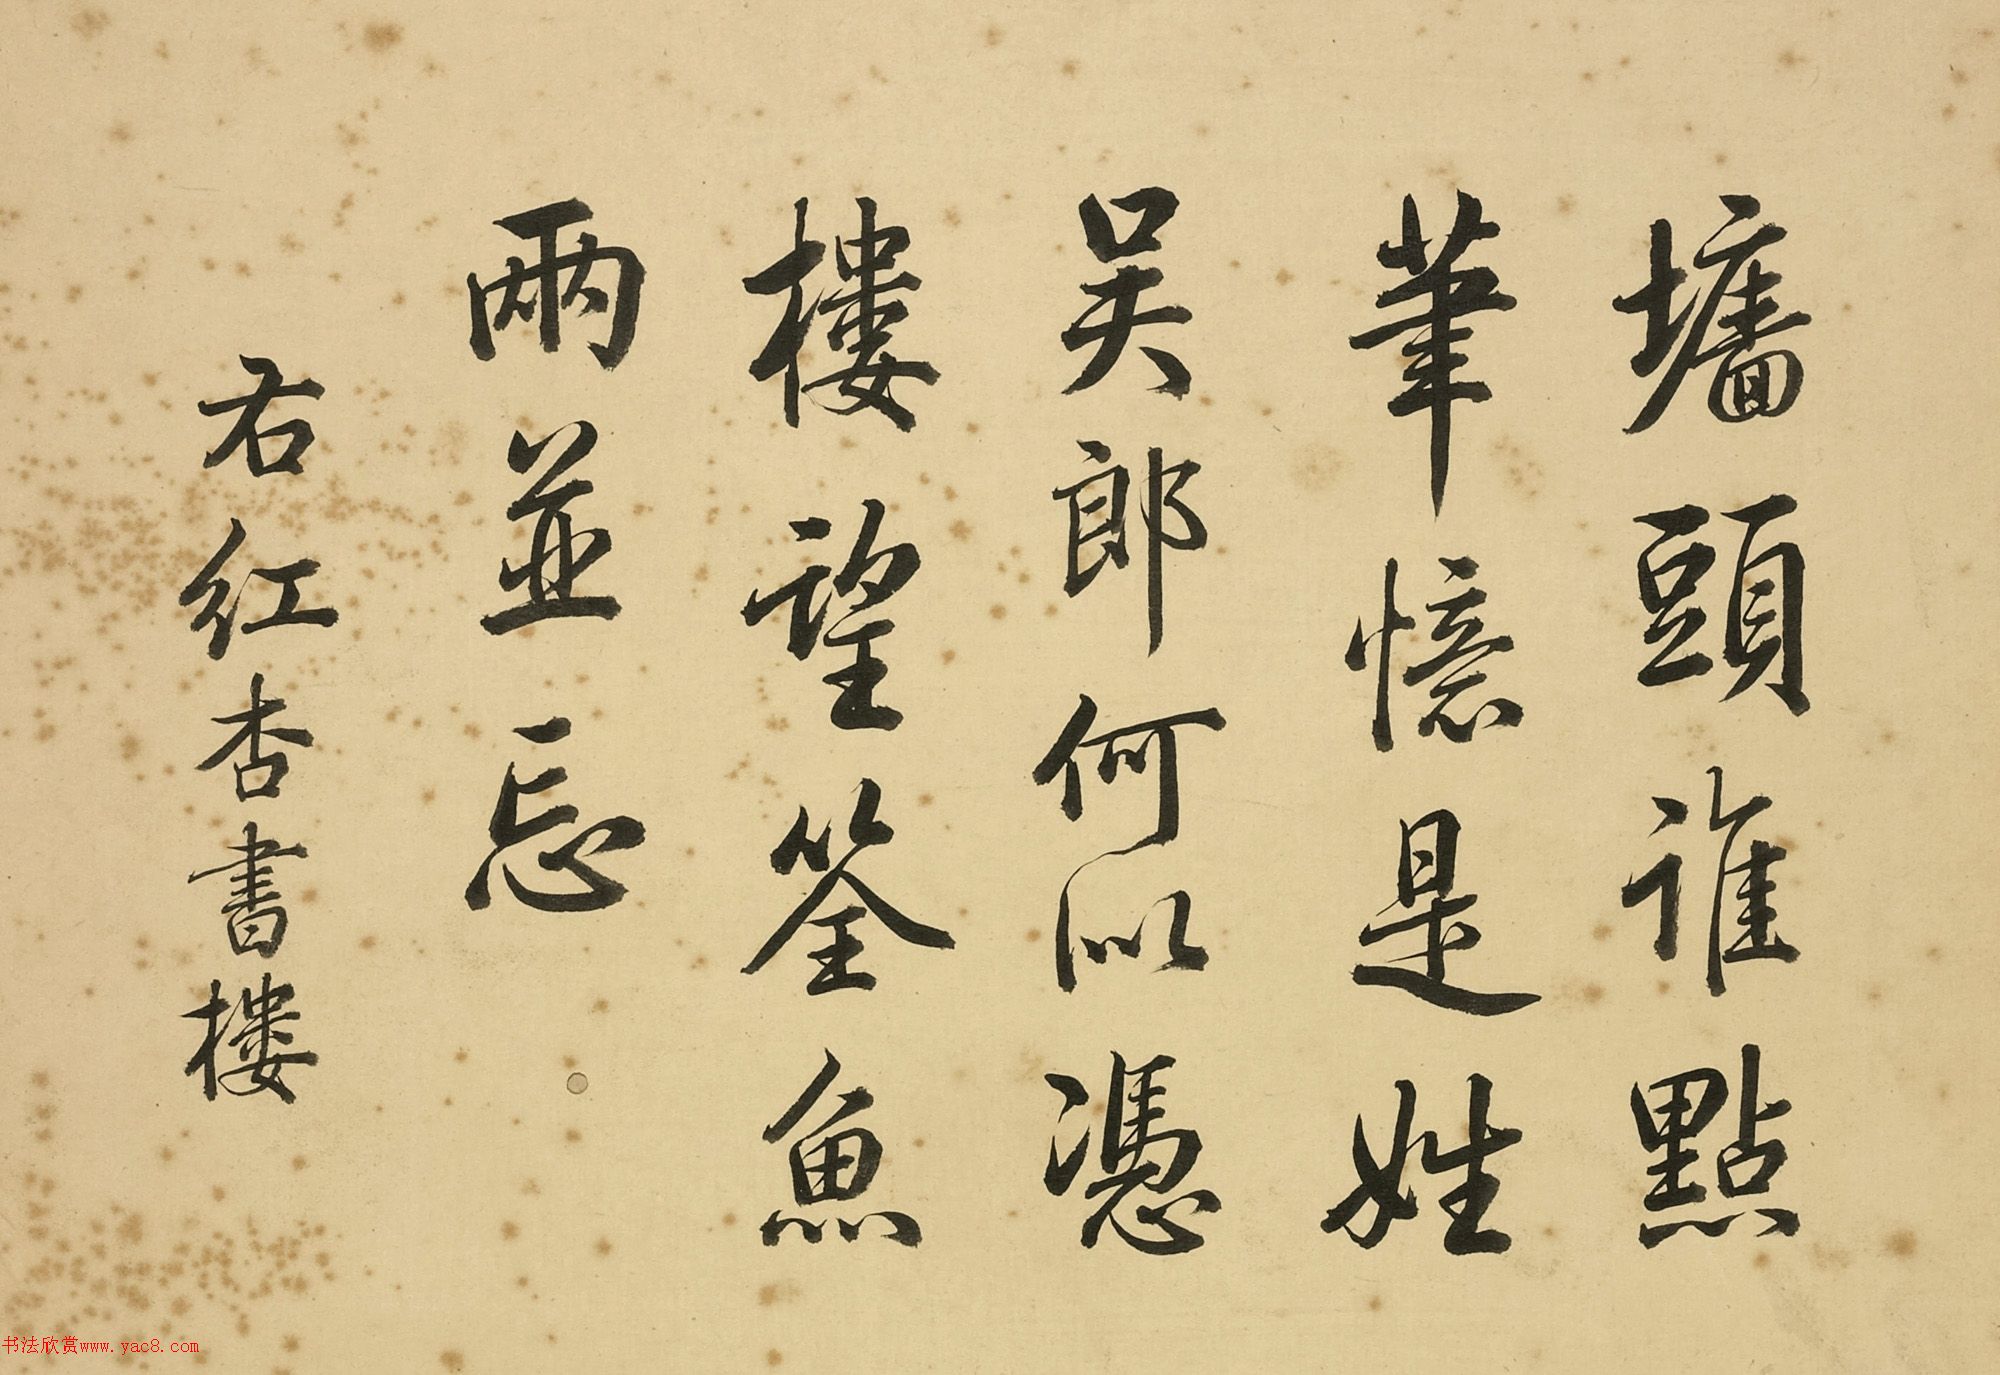 墻頭誰點
筆憶是姓
吴郎何似憑
樓望筌魚
兩並忘
右紅杏書樓
书法欣赏www.yac8.com